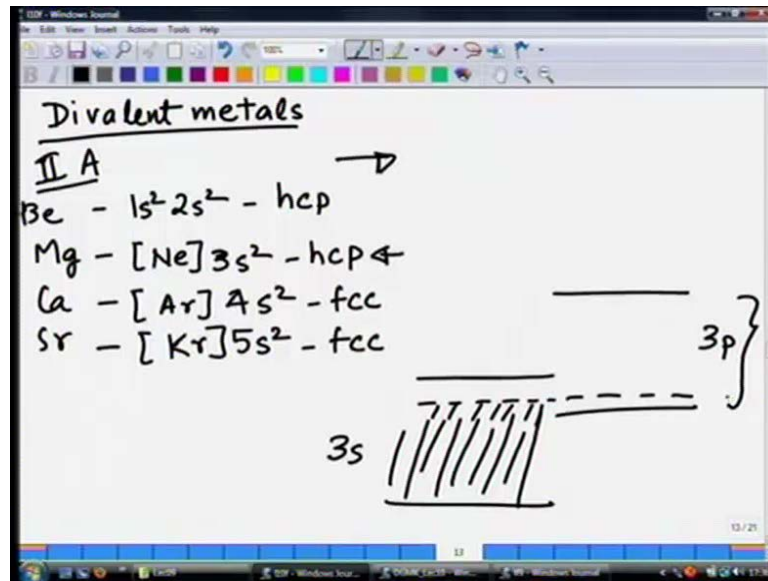 Windows Journal
Edit View Insert Actions Tools Help
100%
Divalent metals
II A
Be - 1s² 2s² - hcp
Mg - [Ne] 3s² - hcp ←
Ca - [Ar] 4s² - fcc
Sr - [Kr] 5s² - fcc
3p
3s
13/21
13